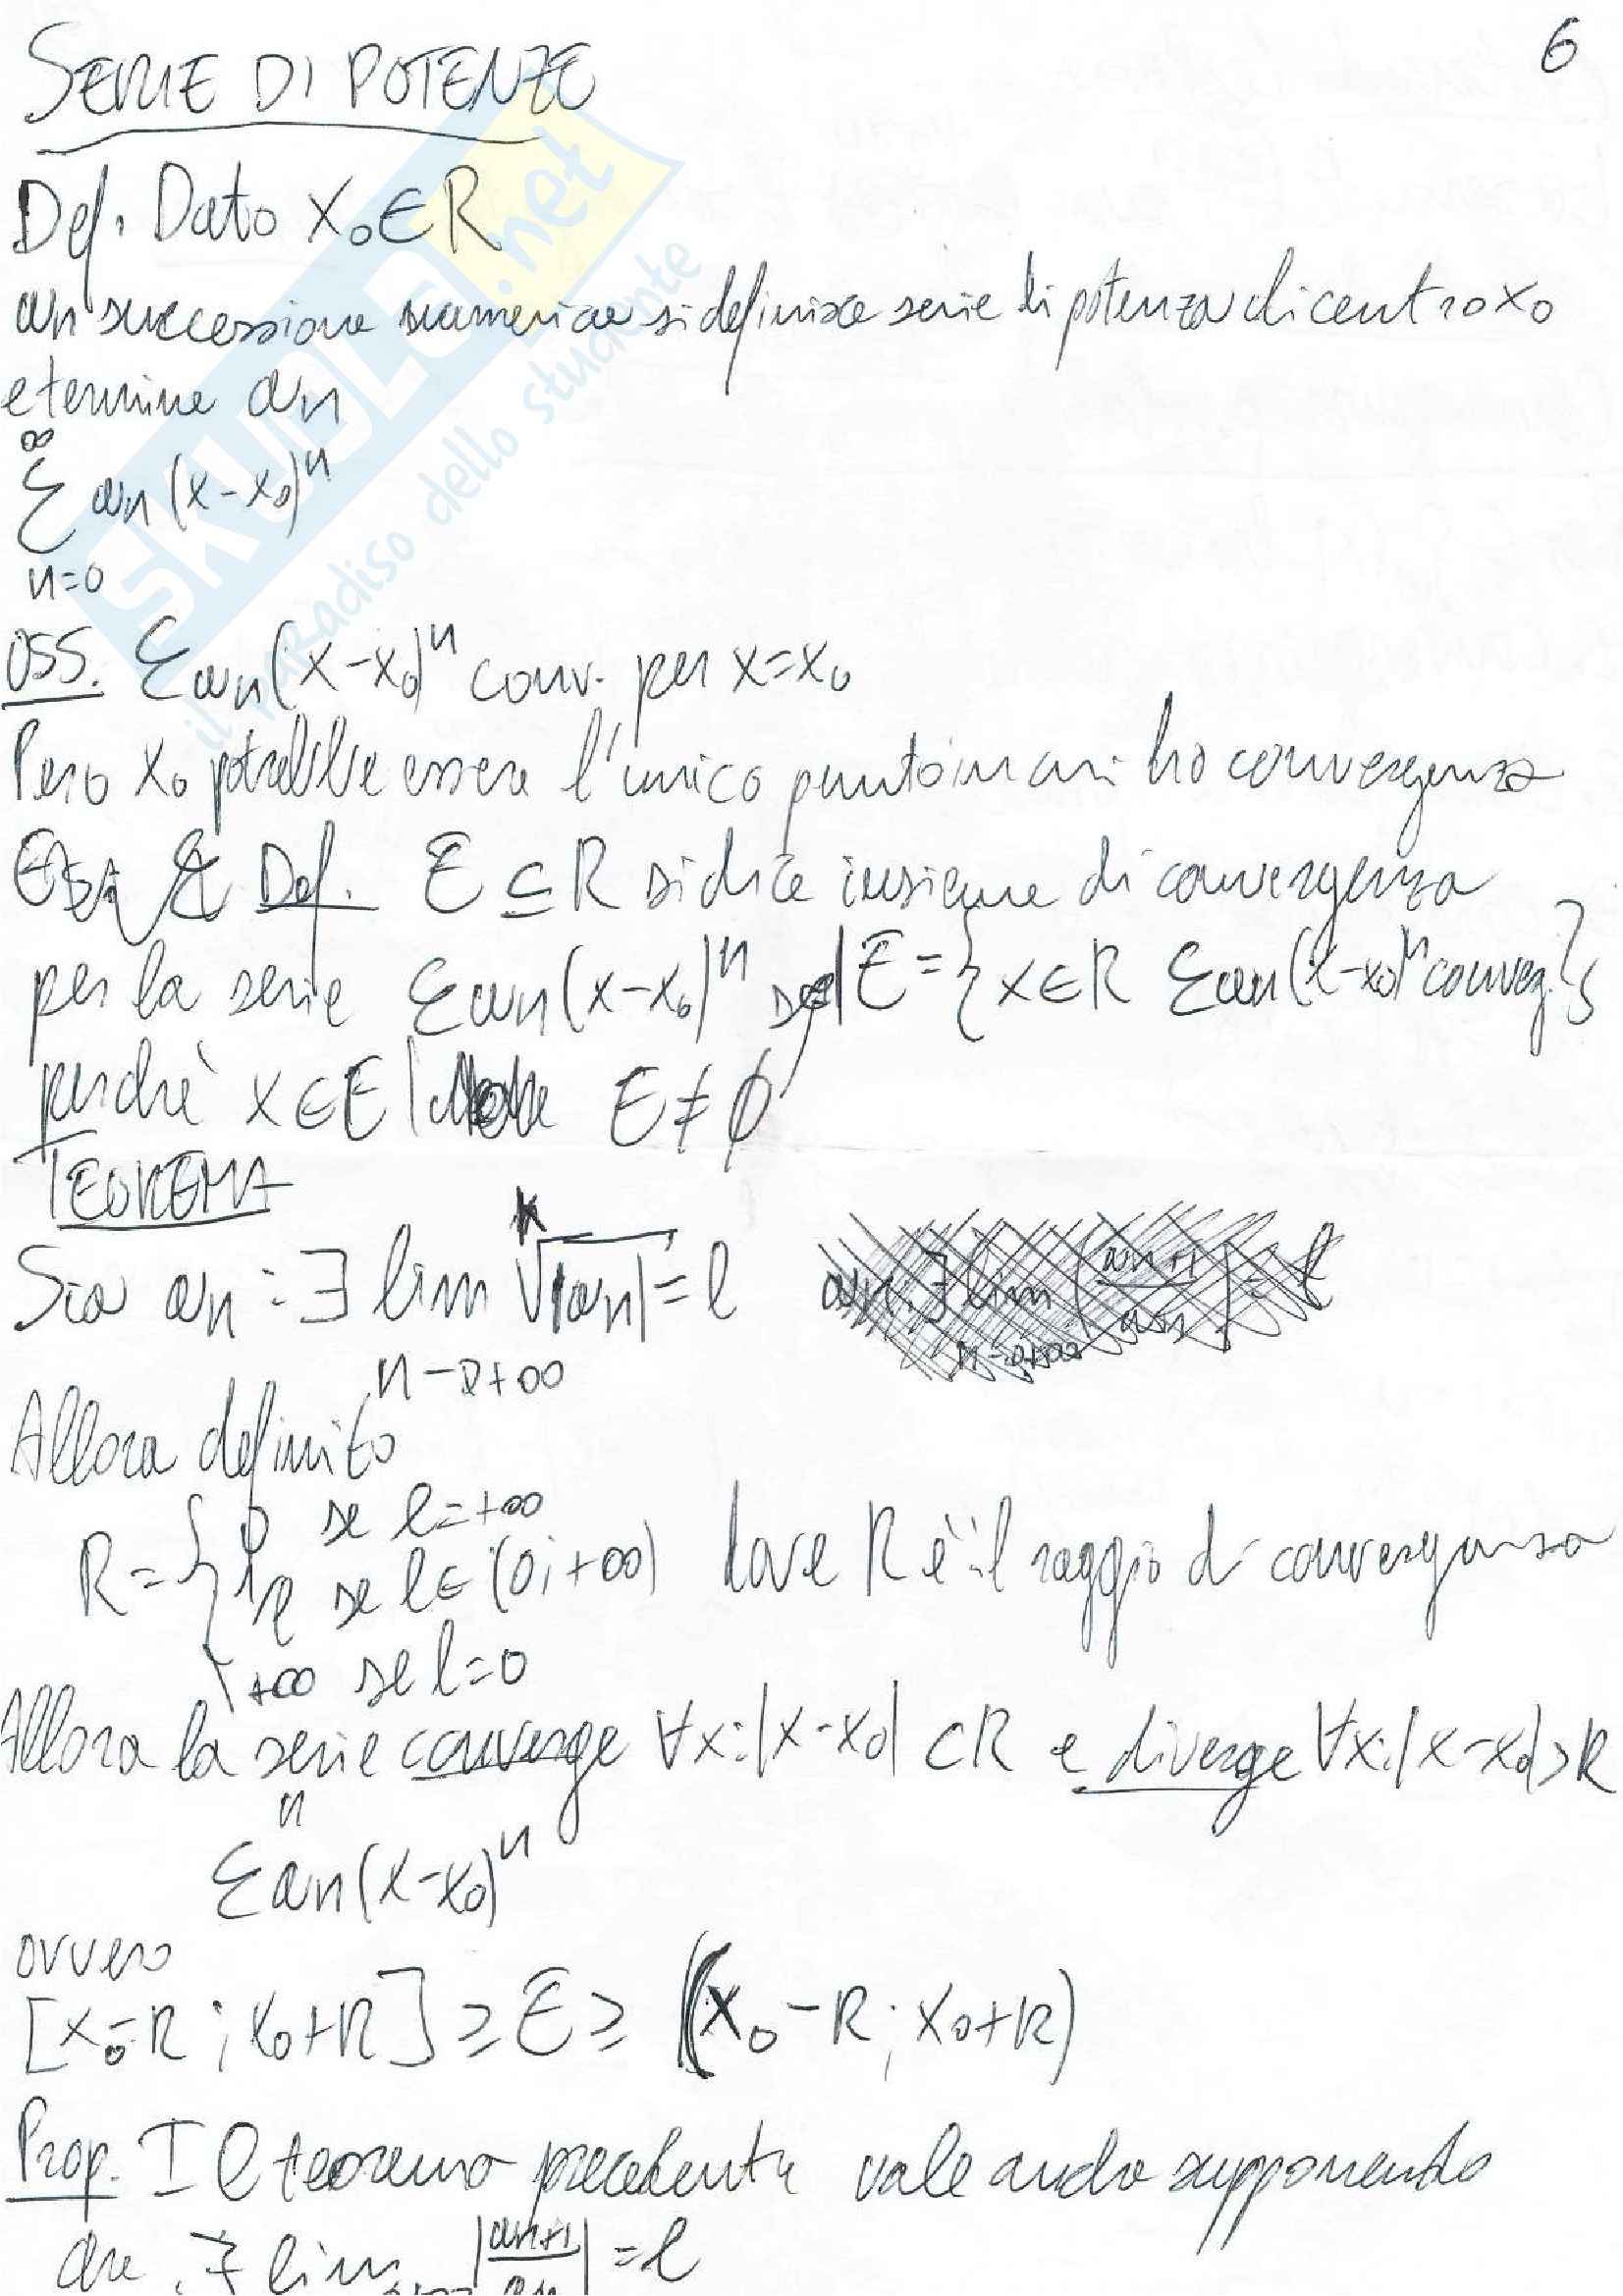 6
SERIE DI POTENZE
Def. Dato x₀∈R
an successione numerica si definisce serie di potenza di centro x₀
e termine an
∞
Σ an(x-x₀)ⁿ
n=0
OSS. Σan(x-x₀)ⁿ conv. per x=x₀
Pero x₀ potrebbe essere l'unico punto in cui ho convergenza
Def. E ⊆ R si dice insieme di convergenza
per la serie Σan(x-x₀)ⁿ E={x∈R Σan(x-x₀)ⁿ converg.}
perchè x∈E | E≠∅
TEOREMA
Sia an:∃ lim ⁿ√|an|=l
n→+∞
Allora definito
R={0 se l=+∞
1/l se l∈(0;+∞) dove R è il raggio di convergenza
+∞ se l=0
Allora la serie converge ∀x:|x-x₀|<R e diverge ∀x:|x-x₀|>R
n
Σan(x-x₀)ⁿ
ovvero
[x₀-R;x₀+R]≥E≥(x₀-R;x₀+R)
Prop. Il teorema precedente vale anche supponendo
che ∃ lim |an+1/an|=l
SKUOLA.net
il paradiso dello studente